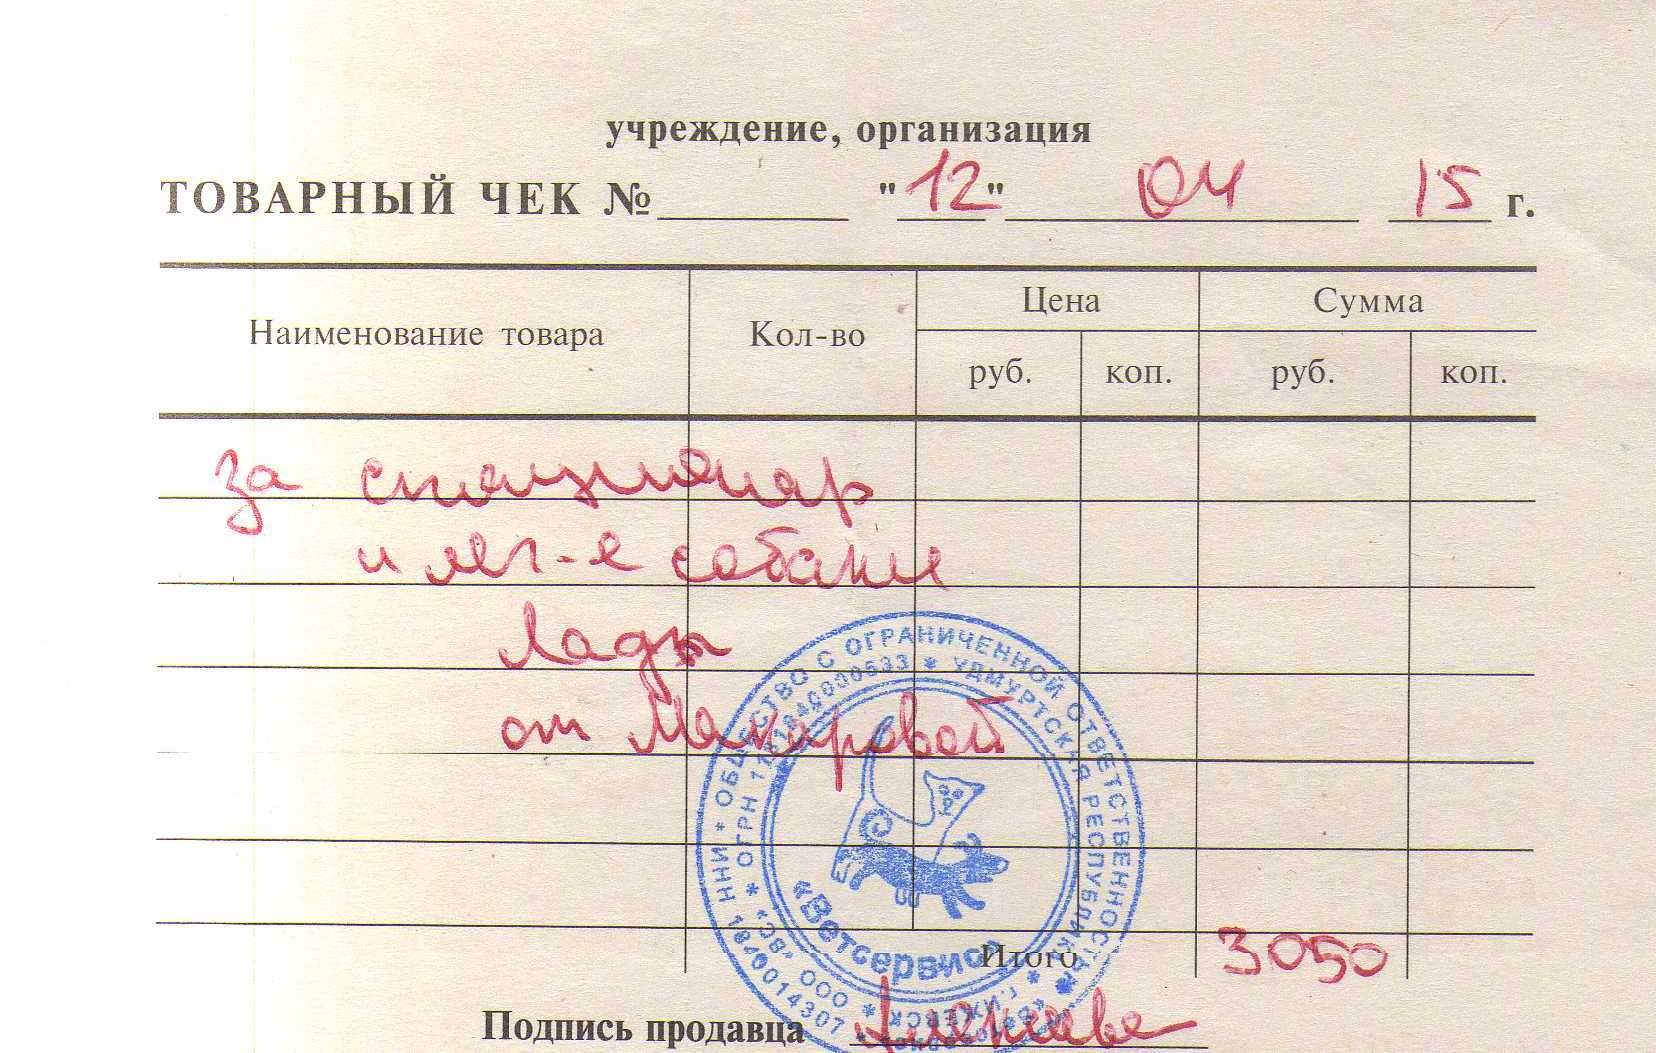 учреждение, организация
ТОВАРНЫЙ ЧЕК № "12" 04 15 г.
Наименование товара Кол-во Цена Сумма
руб. коп. руб. коп.
за стационар
и леч-е собаки
Лады
от Макаровой
ОБЩЕСТВО С ОГРАНИЧЕННОЙ ОТВЕТСТВЕННОСТЬЮ
УДМУРТСКАЯ РЕСПУБЛИКА * г. ИЖЕВСК * ООО «ВС» * ОГРН
ИНН 1840014307
«Ветсервис»
Итого 3050
Подпись продавца